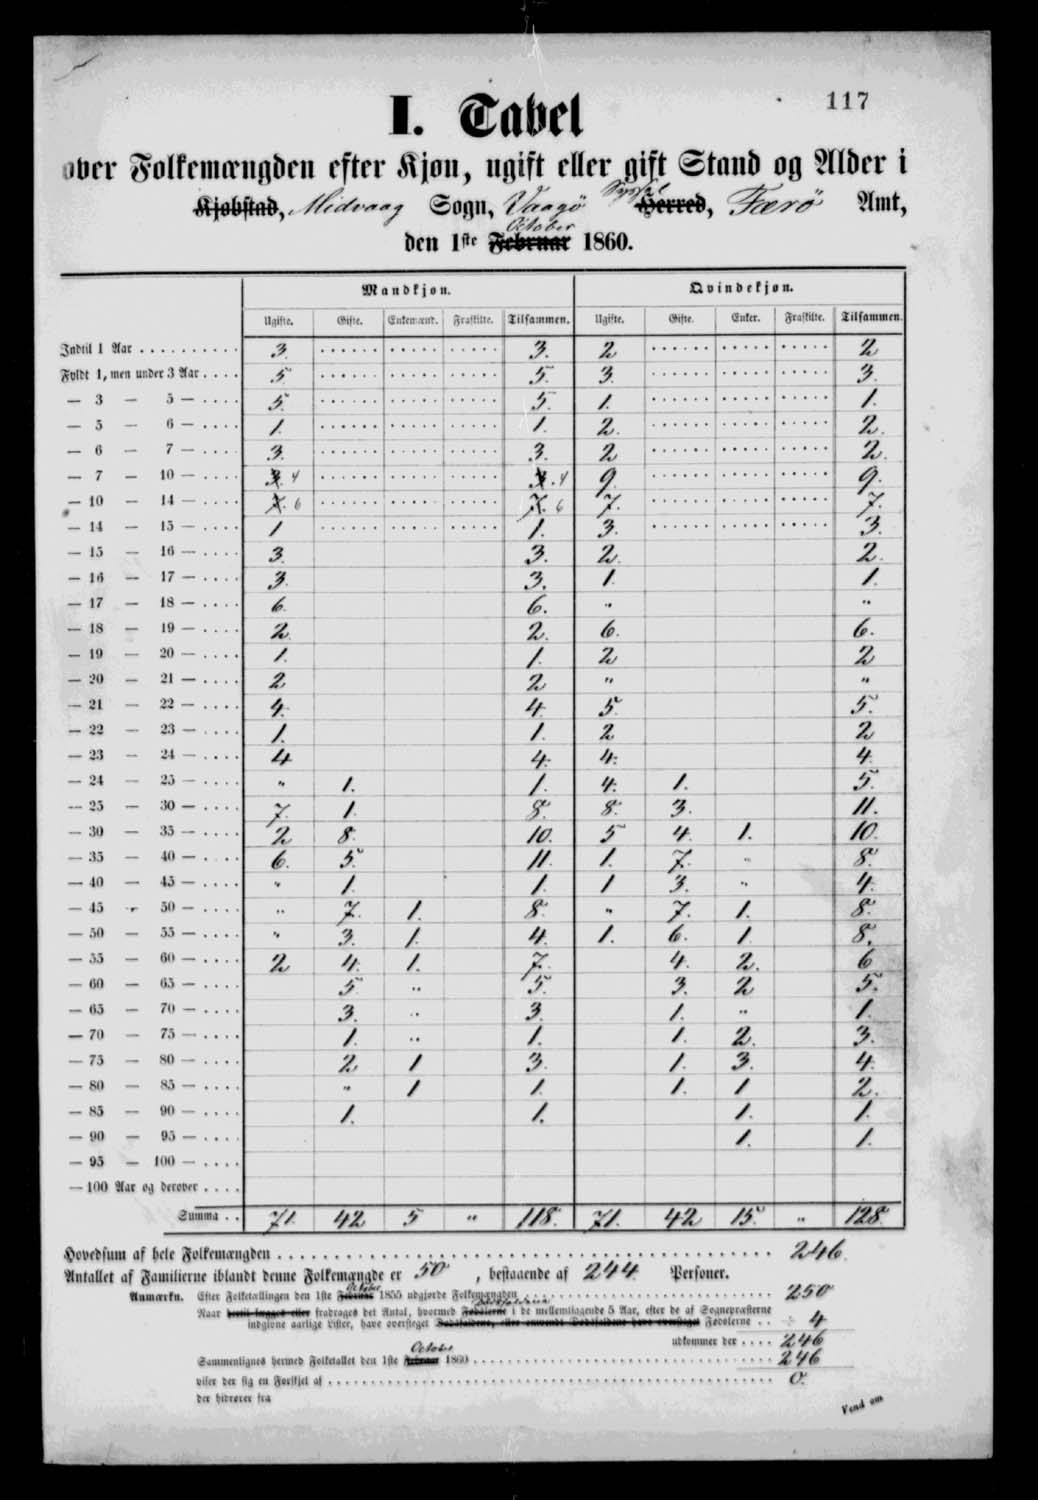 117
I. Tabel
over Folkemængden efter Kjøn, ugift eller gift Stand og Alder i
Kjøbstad, Midvaag Sogn, Vaagö Syssel Herred, Færö Amt,
den 1ste October Februar 1860.
Mandkjøn. Qvindekjøn.
Ugifte. Gifte. Enkemænd. Fraskilte. Tilsammen. Ugifte. Gifte. Enker. Fraskilte. Tilsammen.
Indtil 1 Aar . . . . . . . . . . 3. 3. 2 2
Fyldt 1, men under 3 Aar . . . . 5. 5. 3. 3.
— 3 — 5 — . . . . 5. 5. 1. 1.
— 5 — 6 — . . . . 1. 1. 2. 2.
— 6 — 7 — . . . . 3. 3. 2 2.
— 7 — 10 — . . . . 4 4 9. 9.
— 10 — 14 — . . . . 7. 6 7. 6 7. 7.
— 14 — 15 — . . . . 1 1. 3. 3.
— 15 — 16 — . . . . 3. 3. 2. 2.
— 16 — 17 — . . . . 3. 3. 1. 1.
— 17 — 18 — . . . . 6. 6. " "
— 18 — 19 — . . . . 2. 2. 6. 6.
— 19 — 20 — . . . . 1. 1. 2 2
— 20 — 21 — . . . . 2 2 " "
— 21 — 22 — . . . . 4. 4. 5. 5.
— 22 — 23 — . . . . 1. 1. 2 2
— 23 — 24 — . . . . 4 4. 4. 4.
— 24 — 25 — . . . . " 1. 1. 4. 1. 5.
— 25 — 30 — . . . . 7. 1. 8. 8. 3. 11.
— 30 — 35 — . . . . 2 8. 10. 5 4. 1. 10.
— 35 — 40 — . . . . 6. 5. 11. 1. 7. " 8.
— 40 — 45 — . . . . " 1. 1. 1 3. " 4.
— 45 — 50 — . . . . " 7. 1. 8. " 7. 1. 8.
— 50 — 55 — . . . . " 3. 1. 4. 1. 6. 1 8.
— 55 — 60 — . . . . 2 4. 1. 7. 4. 2. 6
— 60 — 65 — . . . . 5. " 5. 3. 2 5.
— 65 — 70 — . . . . 3. " 3. 1. " 1.
— 70 — 75 — . . . . 1. " 1. 1. 2. 3.
— 75 — 80 — . . . . 2 1 3. 1. 3. 4.
— 80 — 85 — . . . . " 1 1. 1. 1 2.
— 85 — 90 — . . . . 1. 1. 1. 1.
— 90 — 95 — . . . . 1. 1.
— 95 — 100 — . . . .
— 100 Aar og derover . . . .
Summa . . 71. 42 5 " 118. 71. 42 15. " 128.
Hovedsum af hele Folkemængden . . . . . . . . . . 246.
Antallet af Familierne iblandt denne Folkemængde er 50, bestaaende af 244 Personer.
Anmærkn. Efter Folketællingen den 1ste October Februar 1855 udgjorde Folkemængden . . . . 250
Naar hertil lægges eller fradrages det Antal, hvormed Dödsfaldene Fødslerne i de mellemliggende 5 Aar, efter de af Sognepræsterne
indgivne aarlige Lister, have oversteget Dødsfaldene, eller omvendt Dødsfaldene have oversteget Fødslerne . . 4
udkommer der . . . . 246
Sammenlignes hermed Folketallet den 1ste October Februar 1860 . . . . . . . . . . 246
viser der sig en Forskjel af . . . . . . . . . . 0.
der hidrører fra
Vend om